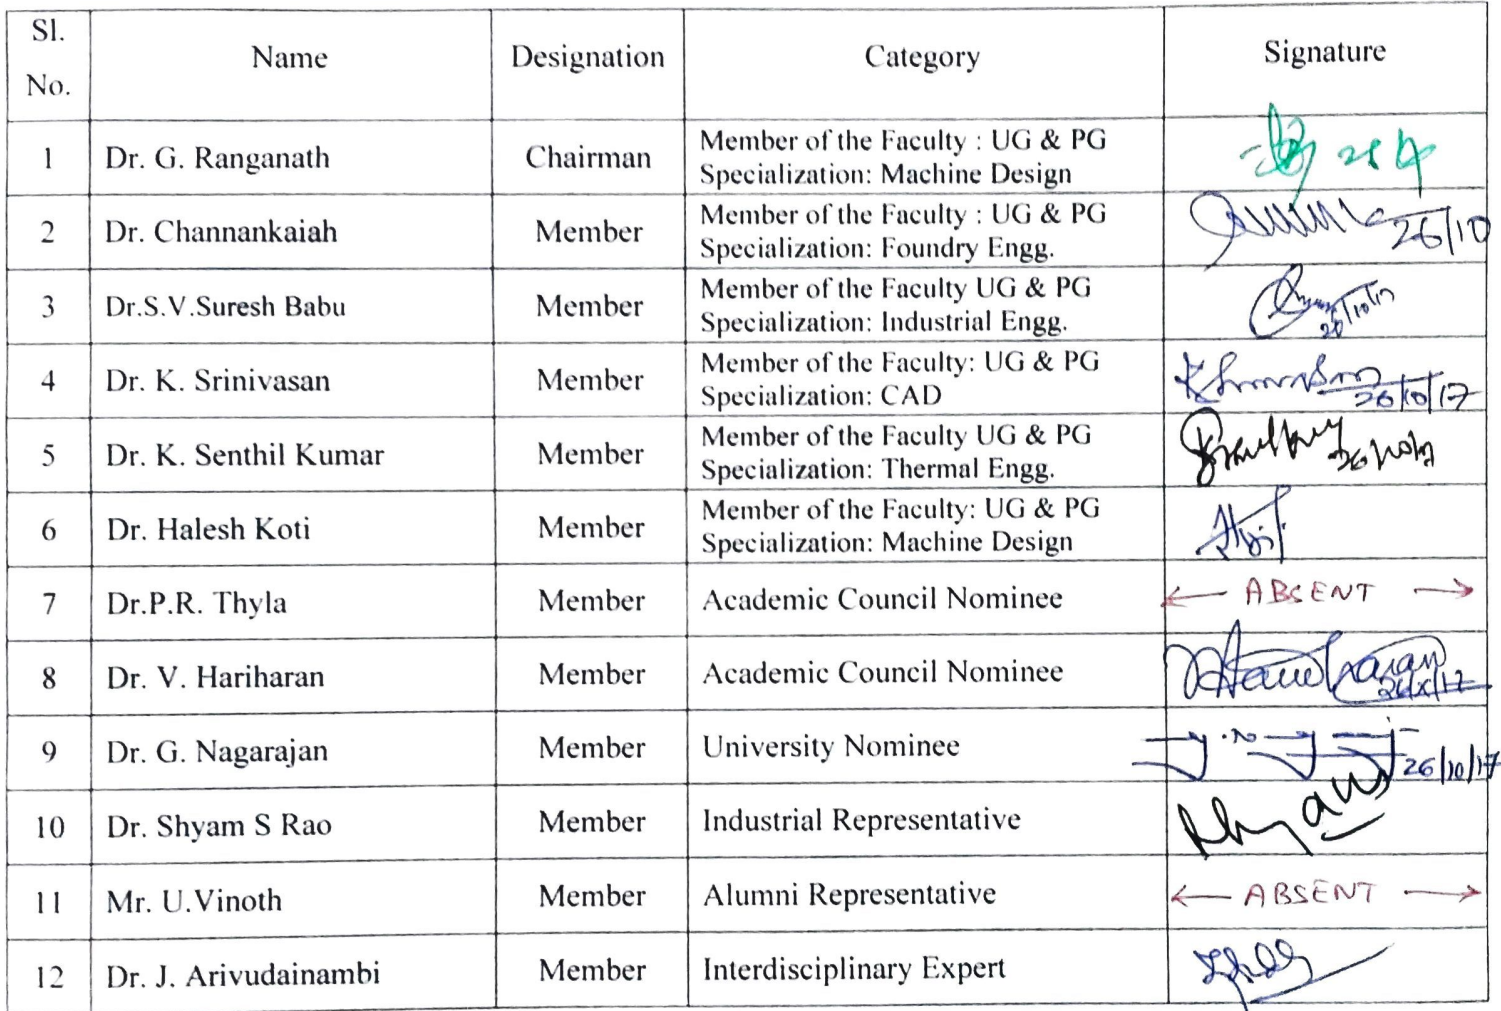 Sl. No. Name Designation Category Signature
1 Dr. G. Ranganath Chairman Member of the Faculty : UG & PG
Specialization: Machine Design
2 Dr. Channankaiah Member Member of the Faculty : UG & PG
Specialization: Foundry Engg. 26/10
3 Dr.S.V.Suresh Babu Member Member of the Faculty UG & PG
Specialization: Industrial Engg. 26/10/17
4 Dr. K. Srinivasan Member Member of the Faculty: UG & PG
Specialization: CAD 26/10/17
5 Dr. K. Senthil Kumar Member Member of the Faculty UG & PG
Specialization: Thermal Engg. 26/10/17
6 Dr. Halesh Koti Member Member of the Faculty: UG & PG
Specialization: Machine Design
7 Dr.P.R. Thyla Member Academic Council Nominee ABSENT
8 Dr. V. Hariharan Member Academic Council Nominee 26/x/17
9 Dr. G. Nagarajan Member University Nominee 26/10/17
10 Dr. Shyam S Rao Member Industrial Representative
11 Mr. U.Vinoth Member Alumni Representative ABSENT
12 Dr. J. Arivudainambi Member Interdisciplinary Expert